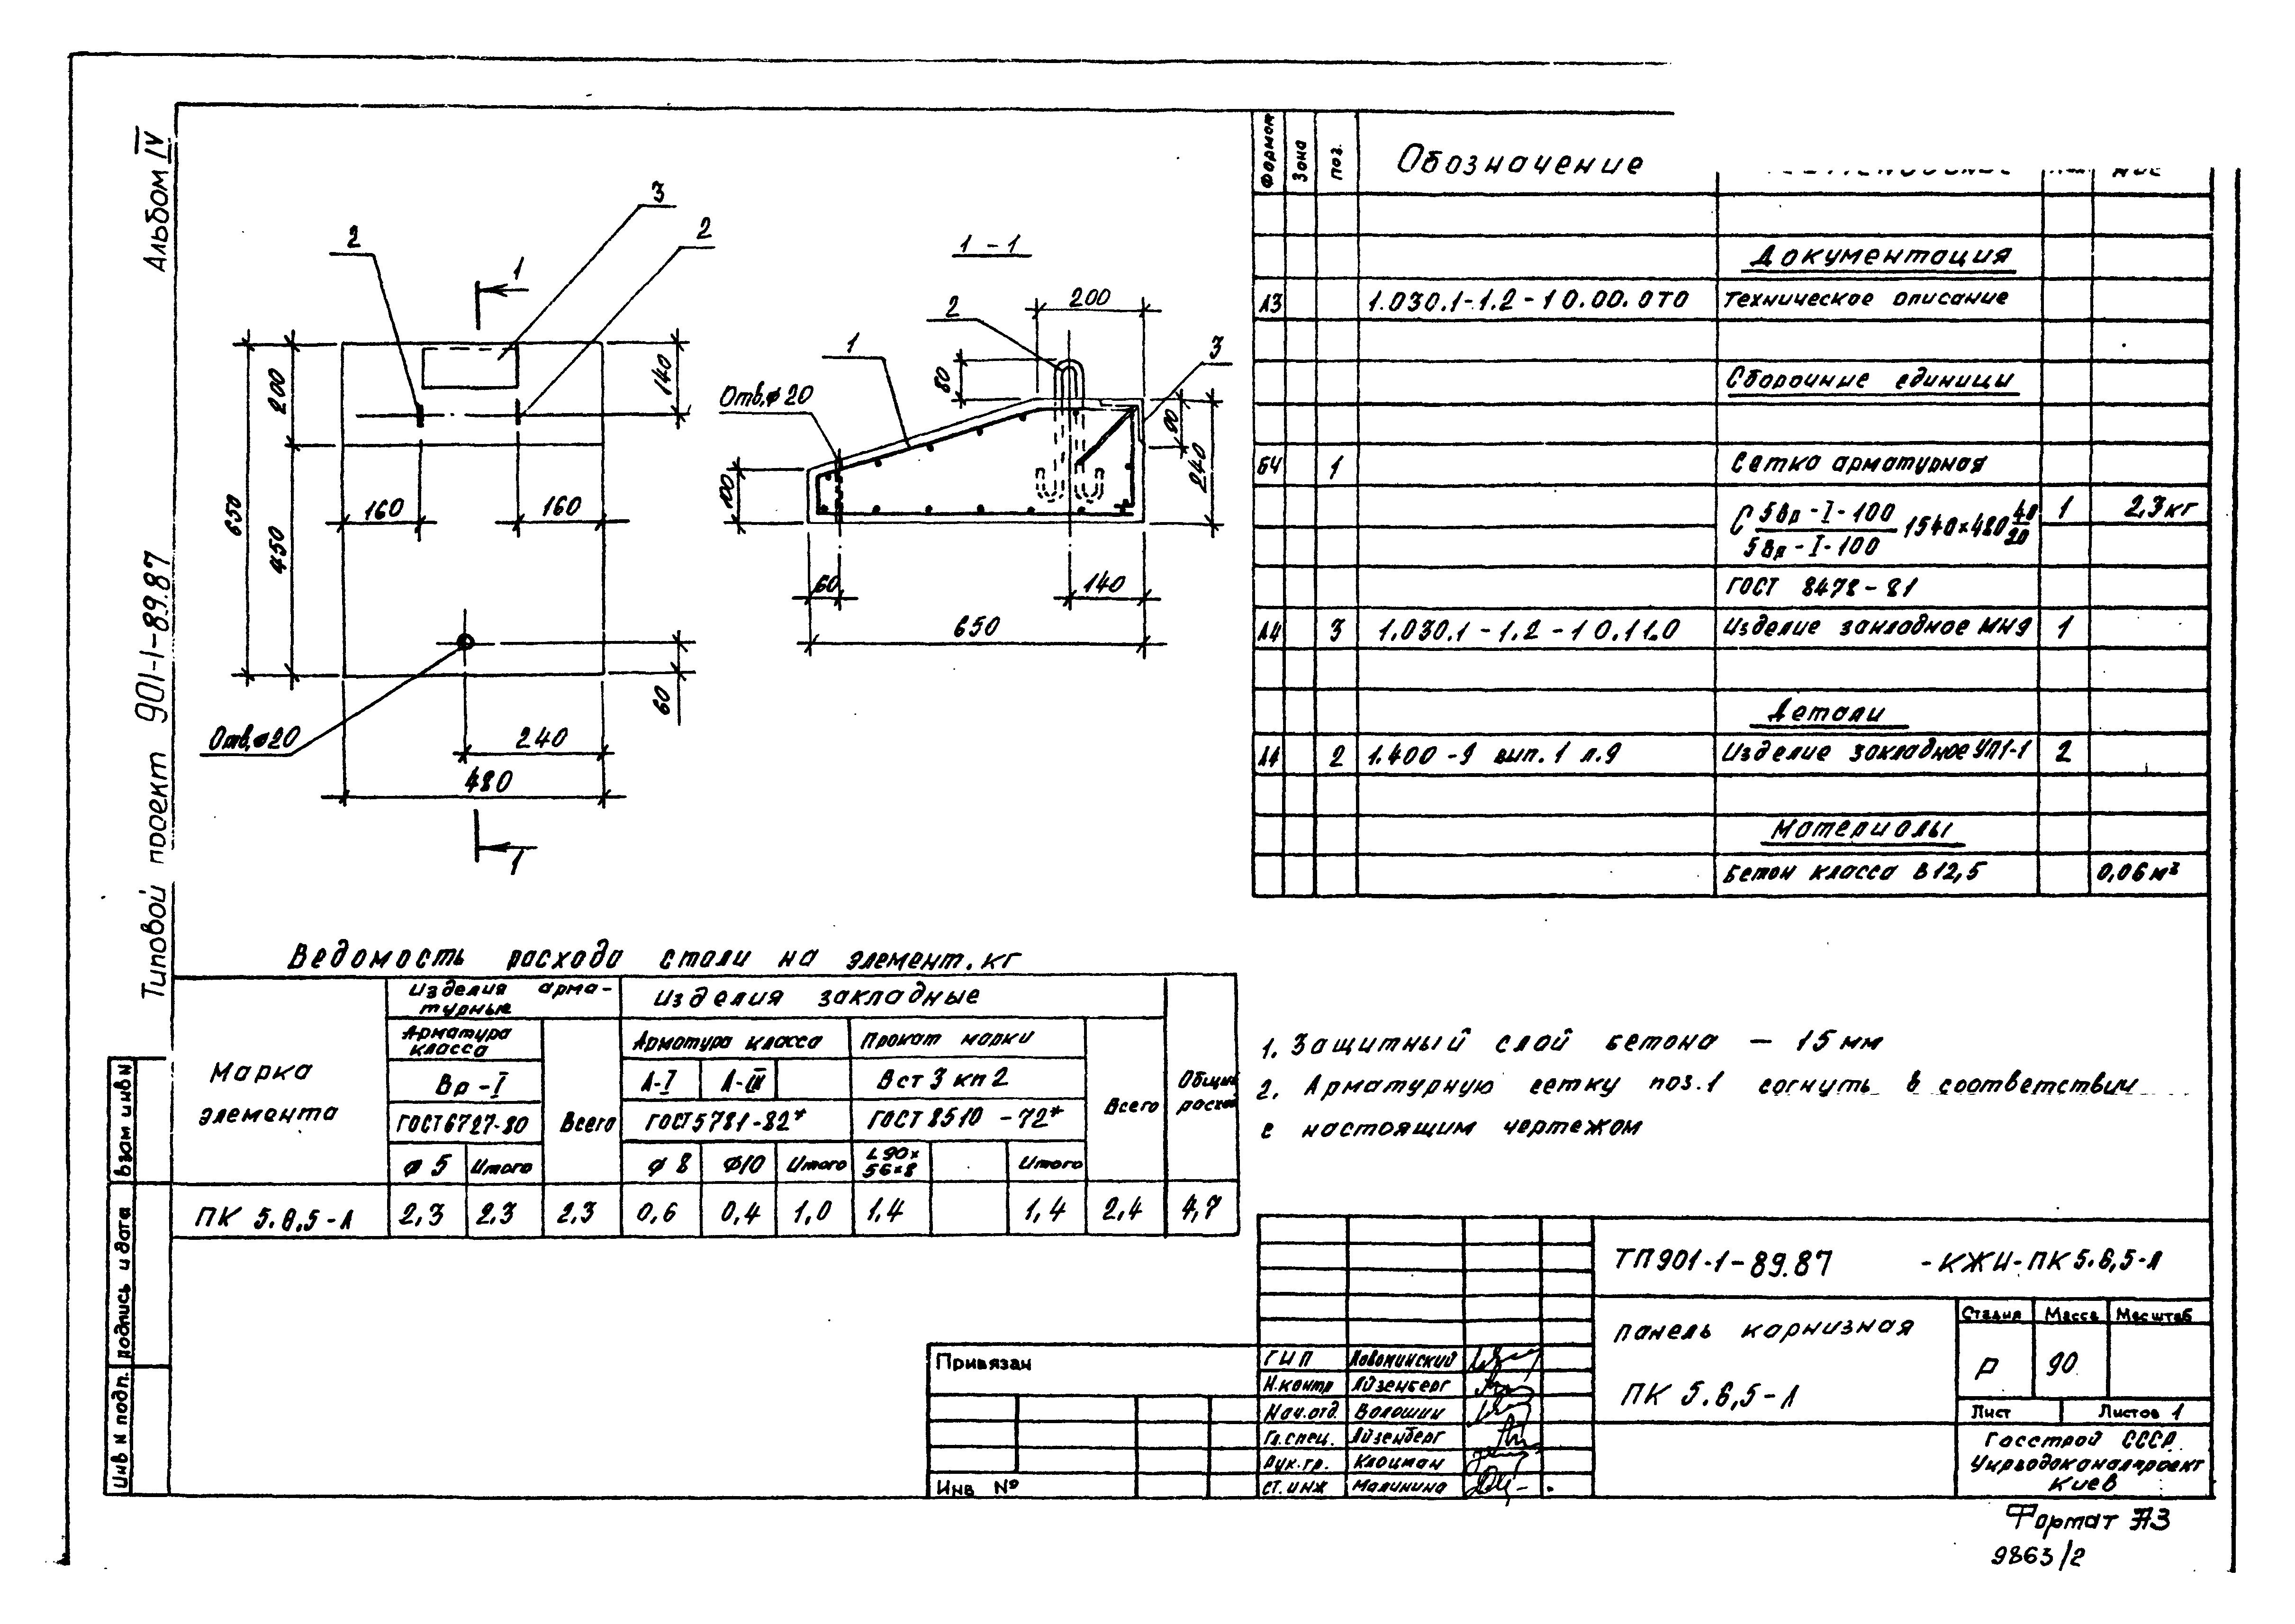 Альбом IV
Типовой проект 901-1-89.87
2
3
2
1
200
450
650
140
160
160
60
Отв.⌀20
240
480
1
1-1
200
2
1
3
80
Отв.⌀20
90
240
100
60
140
650
Формат
Зона
поз.
Обозначение
Документация
А3 1.030.1-1.2-10.00.0ТО Техническое описание
Сборочные единицы
БЧ 1 Сетка арматурная
С 5Вр-I-100 / 5Вр-I-100 1540×480 40/20 1 2,3кг
ГОСТ 8478-81
А4 3 1.030.1-1.2-10.11.0 Изделие закладное МН9 1
Детали
А4 2 1.400-9 вып.1 л.9 Изделие закладное УП1-1 2
Материалы
Бетон класса В12,5 0,06м³
Ведомость расхода стали на элемент, кг
Марка элемента
Изделия арма-
турные
Изделия закладные
Общий
расход
Арматура
класса
Всего
Арматура класса
Прокат марки
Всего
Вр-I
А-I А-III
Вст3кп2
ГОСТ6727-80
ГОСТ5781-82*
ГОСТ8510-72*
⌀5 Итого ⌀8 ⌀10 Итого L90×
56×8 Итого
ПК 5.6,5-А 2,3 2,3 2,3 0,6 0,4 1,0 1,4 1,4 2,4 4,7
1. Защитный слой бетона – 15мм
2. Арматурную сетку поз.1 согнуть в соответствии
с настоящим чертежом
Взам инв N
Подпись и дата
Инв N подп.
ТП901-1-89.87 -КЖИ-ПК5.6,5-А
Панель карнизная
ПК 5.6,5-А
Стадия Масса Масштаб
Р 90
Лист Листов 1
Госстрой СССР
Укрводоканалпроект
Киев
Привязан
Инв №
ГИП
Н.контр Айзенберг
Нач.отд. Волошин
Гл.спец. Айзенберг
Рук.гр. Клоцман
Ст.инж Малинина
Формат А3
9863/2